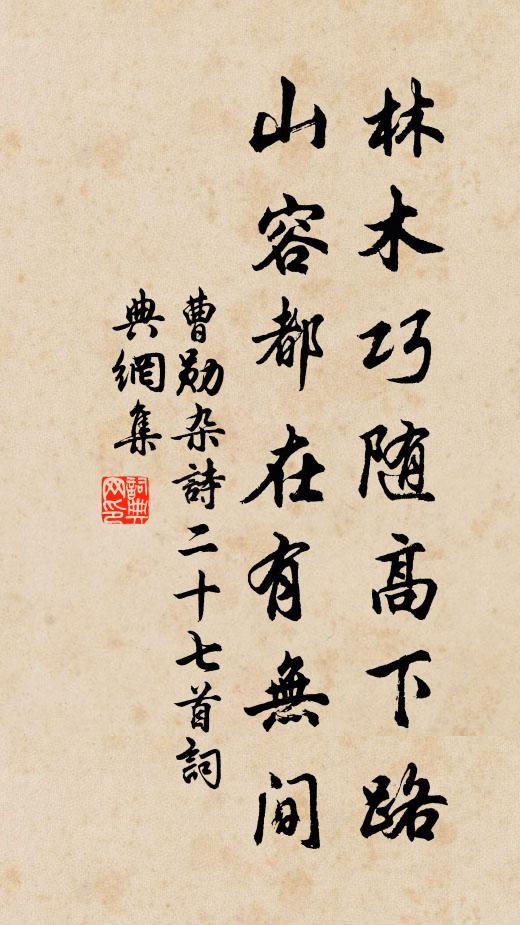 林木巧随高下路
山容都在有無间
曹勛杂詩二十七首詞
典網集
詞典网印